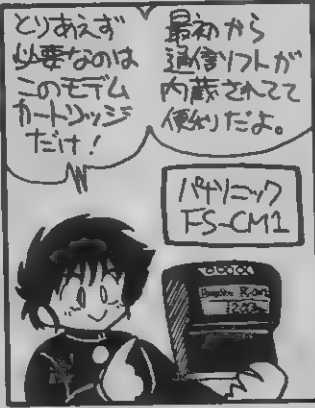 最初から
通信ソフトが
内蔵されてて
便利だよ。
とりあえず
必要なのは
このモデム
カートリッジ
だけ！
パナソニック
FS-CM1